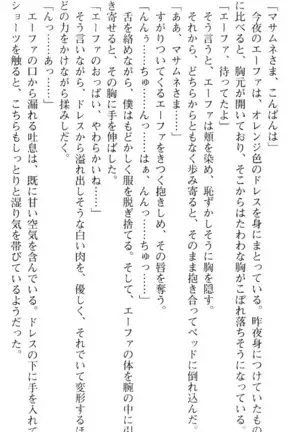 「マサムネさま、こんばんは」
今夜のエーファは、オレンジ色のドレスを身にまとっている。昨夜身につけていたもの
に比べると、胸元が開いており、そこからはたわわな胸がこぼれ落ちそうになっていた。
「エーファ、待ってたよ」
そう言うと、エーファは頬を染め、恥ずかしそうに胸を隠す。
それから、どちらからともなく歩み寄ると、そのまま抱き合ってベッドに倒れ込んだ。
「ああ、マサムネさま……」
すがりついてくるエーファをきつく抱きしめ、その唇を奪う。
「んんぅ……ちゅ……んっ……はぁ、んんっ……ちゅっ……」
舌を絡めながら、僕はもどかしく服を脱ぎ捨てる。そして、エーファの体を腕の中に引
き寄せると、その胸に手を伸ばした。
「エーファのおっぱい、やわらかいね……」
そう言いながら、ドレスから溢れ出しそうな白い肉を、優しく、それでいて変形するほ
どの力をかけながら揉みしだく。
「んっ……あっ……」
エーファの口から漏れる吐息は、既に甘い空気を含んでいる。ドレスの下に手を入れて
ショーツを触ると、こちらもしっとりと湿り気を帯びているようだった。